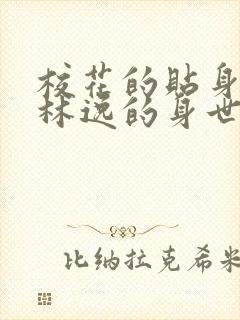 校花的贴身
林逸的身世
比纳拉克希米